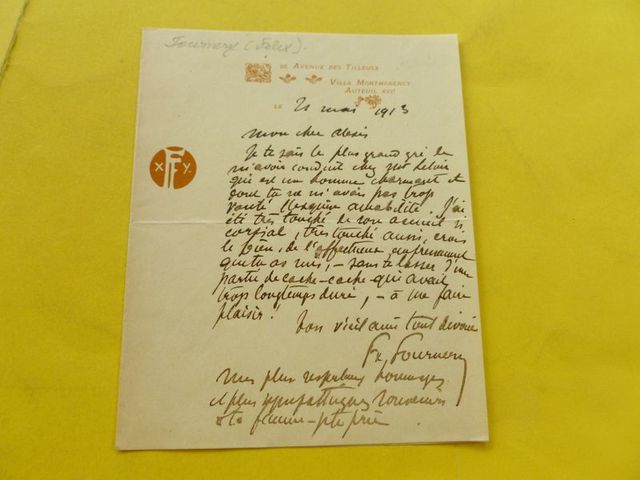 Fournery (Félix).
58 Avenue des Tilleuls
Villa Montmorency
Auteuil XVIe
Le 21 mai 1913
XFY.
Mon cher Alexis
Je te sais le plus grand gré de
m'avoir conduit chez Mr
qui est un homme charmant et
dont tu ne m'avais pas trop
vanté l'exquise amabilité. J'ai
été très touché de son accueil si
cordial, très touché aussi, crois
le bien, de l'affectueux empressement
que tu as mis, – sans te lasser d'une
partie de cache-cache qui avait
trop longtemps duré, – à me faire
plaisir !
Ton vieil ami tout dévoué
Fx. Fournery
Mes plus respectueux hommages
et plus sympathiques souvenirs
à ta femme – je te prie